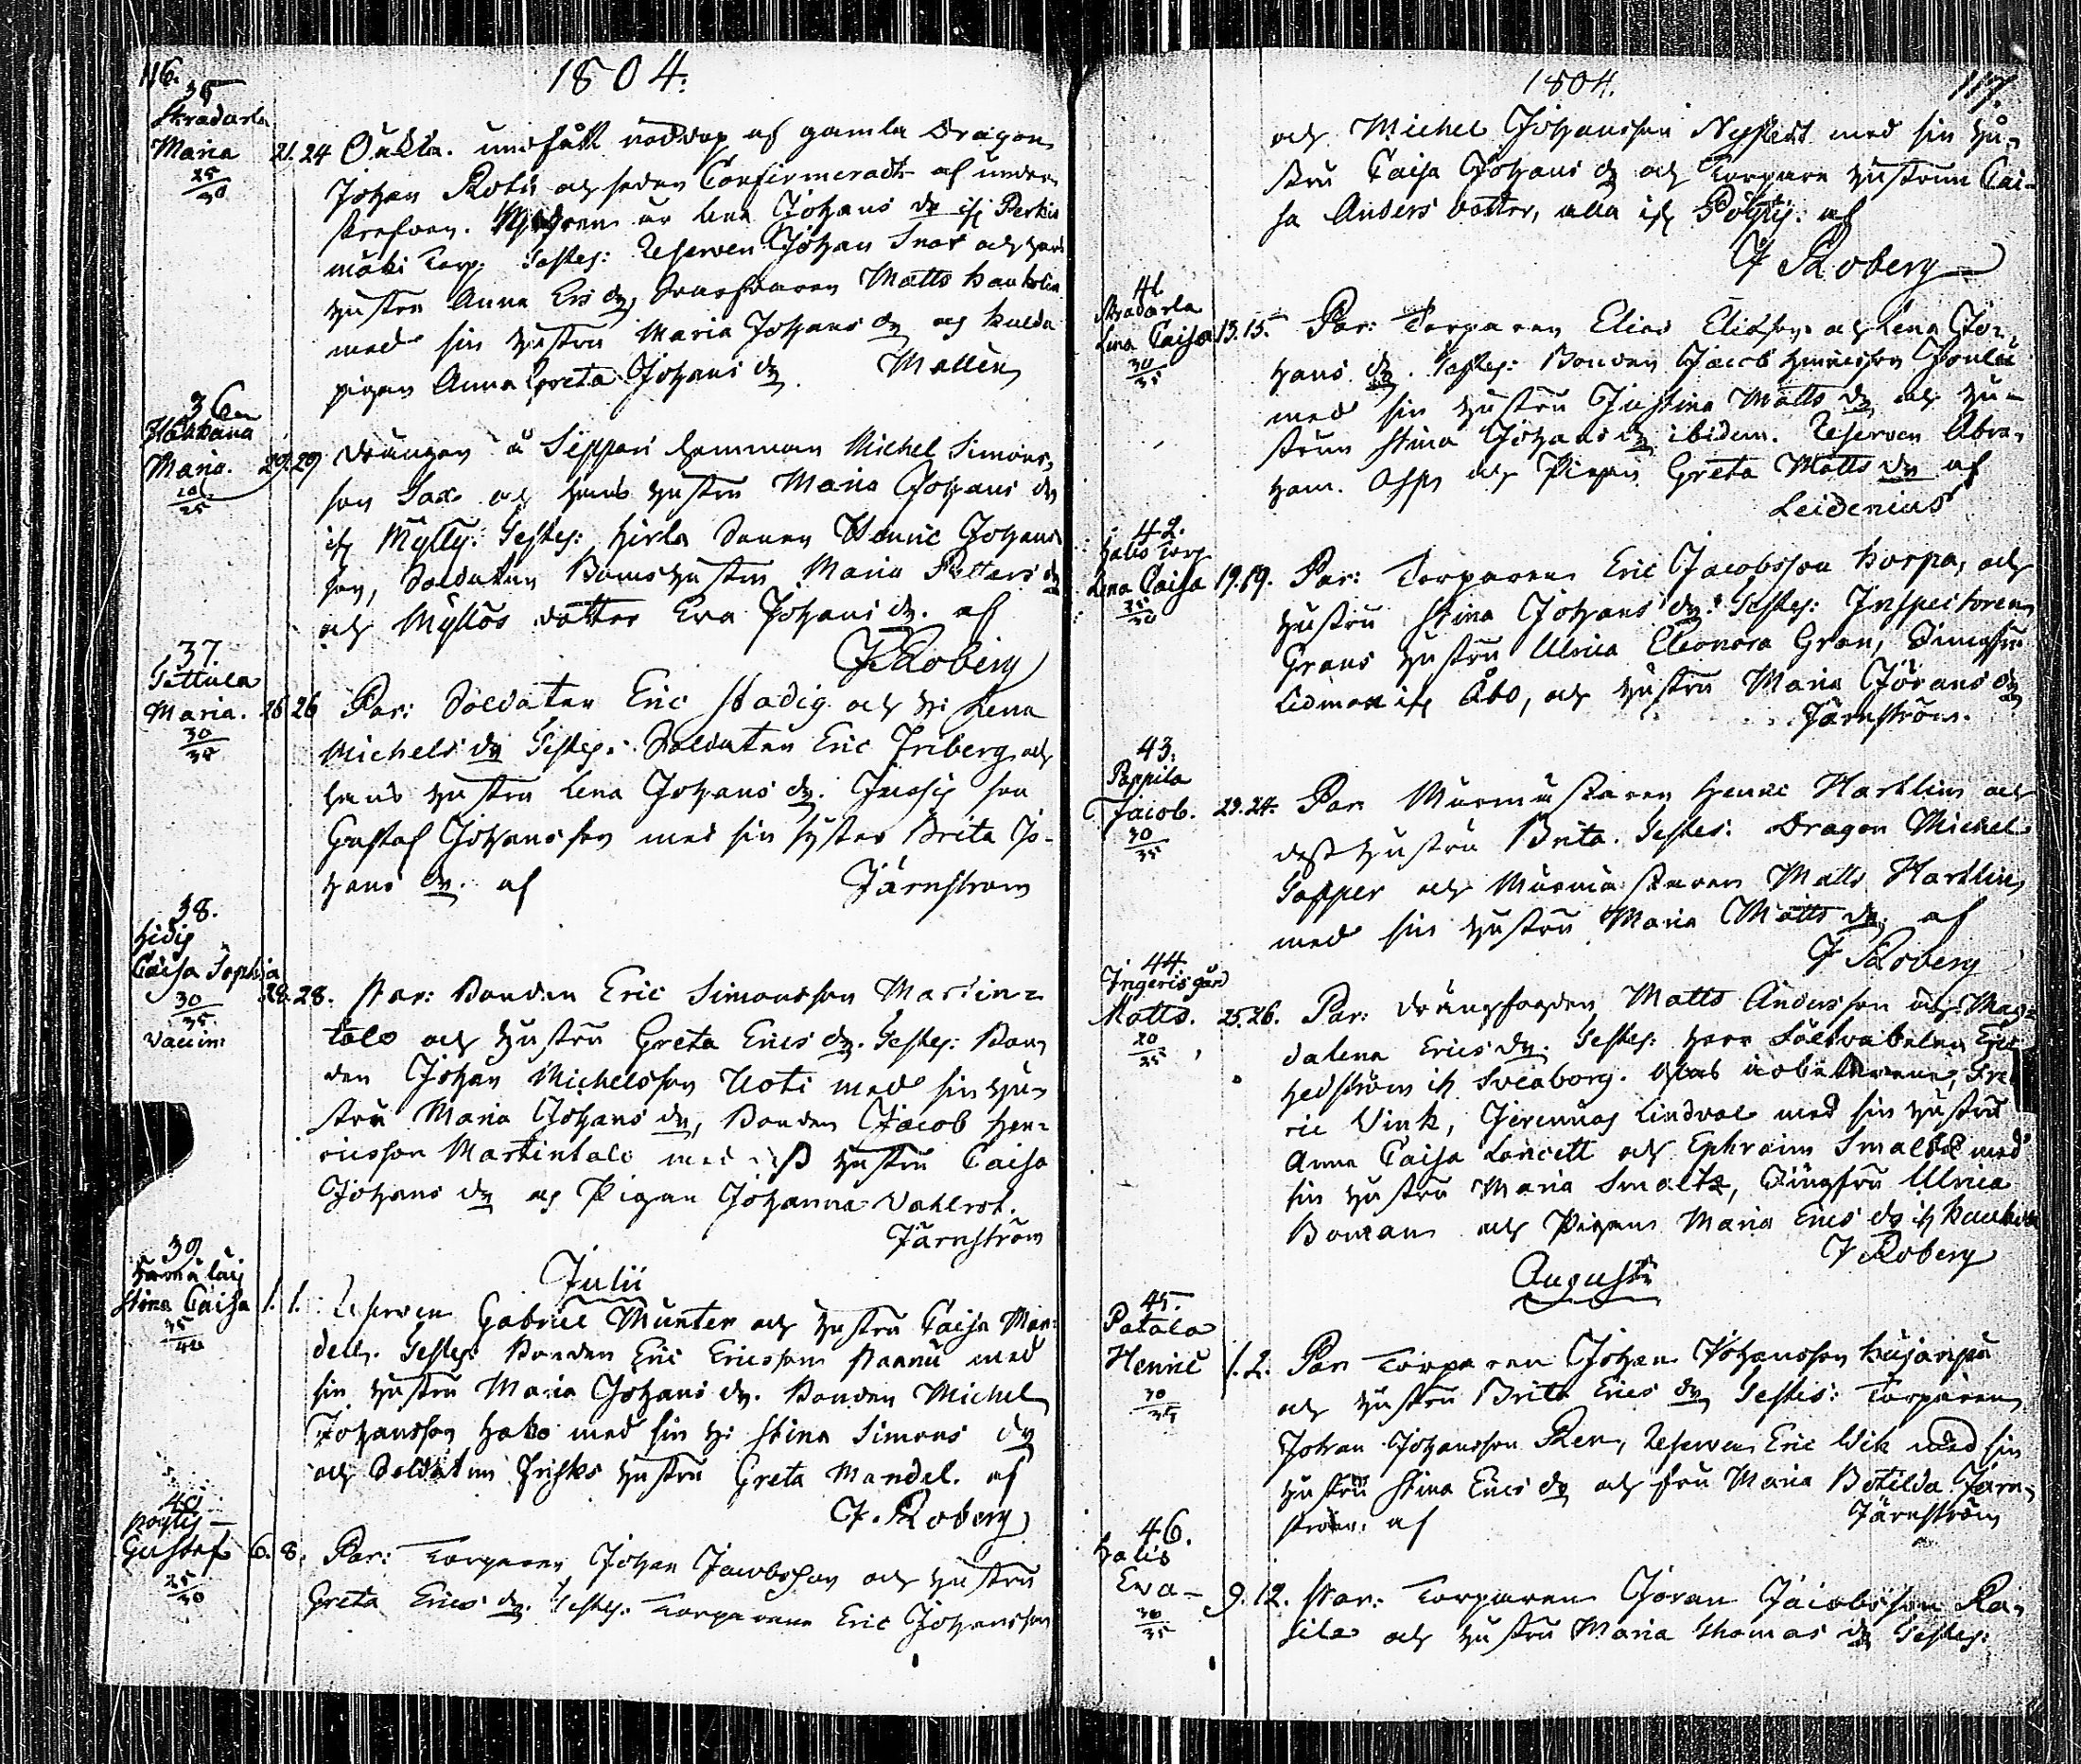 116.
1804.
35
Skradarla
Maria 21. 24 Oäkta. undfått nöddop af gamla Dragon
25
30
Johan Rotu och sedan Confirmeradt af under
skrefven. Modren är Lena Johans dr ifr Perkiö
mäki torp. Testes: Reserven Johan Snar och hans
hustru Anna Ers dr, Svarfvaren Matts Haukola
med sin hustru Maria Johans dr och Kulda
pigan Anna Greta Johans dr. Mallén
36
Maria. 29. 29 Drängen å Seppäri hemman Michel Simons
20
25
son Sax och hans hustru Maria Johans dr
ifr Mylly. Testes: Hirla Sonen Henric Johans
son, Soldaten Boms hustru Maria Petters dr
och Myllös dotter Eva Johans dr. af
J Roberg
37.
Tattula
Maria. 26 26 Par: Soldaten Eric Stadig och H: Lena
30
35
Michels dr Testes: Soldaten Eric Friberg och
hans hustru Lena Johans dr. son
Gustaf Johansson med sin syster Brita Jo-
hans dr. af Järnström
38.
Hidis
Caisa Sophia 28. 28. Par: Bonden Eric Simonsson Martin=
30
35
Vaccin:
talo och hustru Greta Erics dr. Testes: Bon
den Johan Michelsson Uoti med sin hu=
stru Maria Johans dr, Bonden Jacob Hen=
ricsson Martintalo med dess hustru Caisa
Johans dr och Pigan Johanna Vahlrot.
Järnström
Julii
39.
Stina Caisa 1. 1. Reserven Gabriel Munter och hustru Caisa Man=
35
40
dell. Testes: Bonden Eric Ericsson Pannu med
sin hustru Maria Johans dr. Bonden Michel
Johansson Hako med sin h: Stina Simons dr
och Soldaten Frisks hustru Greta Mandel. af
J. Roberg
40
Pöytis
Gustaf 6. 8. Par: Torparen Johan Jacobsson och hustru
25
30
Greta Erics dr. Testes: Torparene Eric Johansson
1804. 117.
och Michel Johansson Nystedt med sin hu=
stru Caisa Johans dr och Torpare hustrun Cai-
sa Anders dotter, alla ifr Pöytis: af
J Roberg
41
Skradarla
Lena Caisa 13. 15. Par: Torparen Elias Eliasson och Lena Jo=
30
35
hans dr. Testes: Bonden Jacob Henricsson Joula
med sin hustru Justina Matts dr och hu=
strun Stina Johans dr ibidem. Reserven Abra=
ham Asp och Pigan Greta Matts dr af
Leidenius
42.
Halis Torp
Lena Caisa 19. 19. Par: Torparen Eric Jacobsson Korpa, och
25
30
hustru Stina Johans dr. Testes: Inspectoren
Grans hustru Ulrica Eleonora Gran, Jungfru
Lidman ifr Åbo, och hustru Maria Jörans dr
Järnström.
43.
Pappila
Jacob. 23. 24. Par Murmästaren Henric Harklin och
30
35
dess hustru Brita. Testes: Dragon Michel
Tapper och Murmästaren Matts Harklin
med sin hustru Maria Matts dr. af
J Roberg
44
Ingerisgård
Matts. 25. 26. Par: Drängfogden Matts Andersson och Mag=
20
25
dalena Erics dr. Testes: Herr Fältväbelen Eric
Hedström ifr Sveaborg. Glas arbetarene, Fre
ric Vink, Jeremias Lindval med sin hustru
Anna Caisa Loncett och Ephraim Smaltz med
sin hustru Maria Smaltz, Jungfru Ulrica
Boman och Pigan Maria Erics dr ifr
J Roberg
Augusti
45.
Patala
Henric 1. 2. Par Torparen Johan Johansson Kujanpä
30
35
och hustru Brita Erics dr Testes: Torparen
Johan Johansson Ren, Reserven Eric Wik med sin
hustru Stina Erics dr och fru Maria Botilda Järn=
ström. af Järnström
46.
Halis
Eva 9. 12. Par: Torparen Jöran Jacobsson Ra=
30
35
sila och hustru Maria Thomas dr Testes: